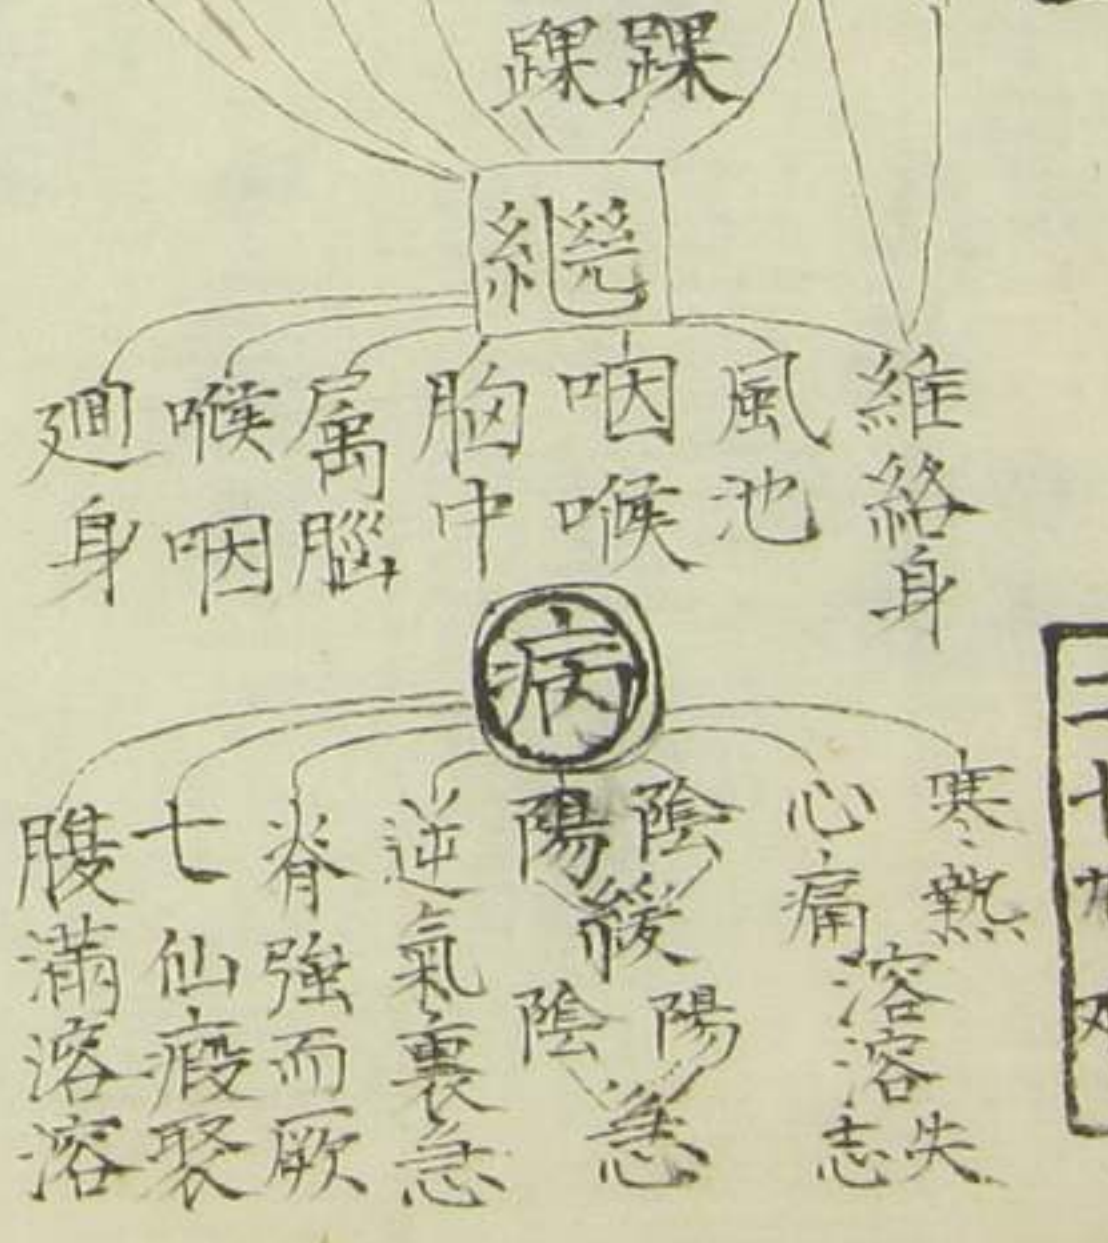 踝踝
繼
維絡身
風池
咽喉
胸中
屬腦
喉咽
𢌞身
病
寒熱
心痛
溶溶
失志
陰陽
緩
陽陰
急
逆氣裏急
脊強而厥
七仙瘕聚
腹滿溶溶
二
七
难